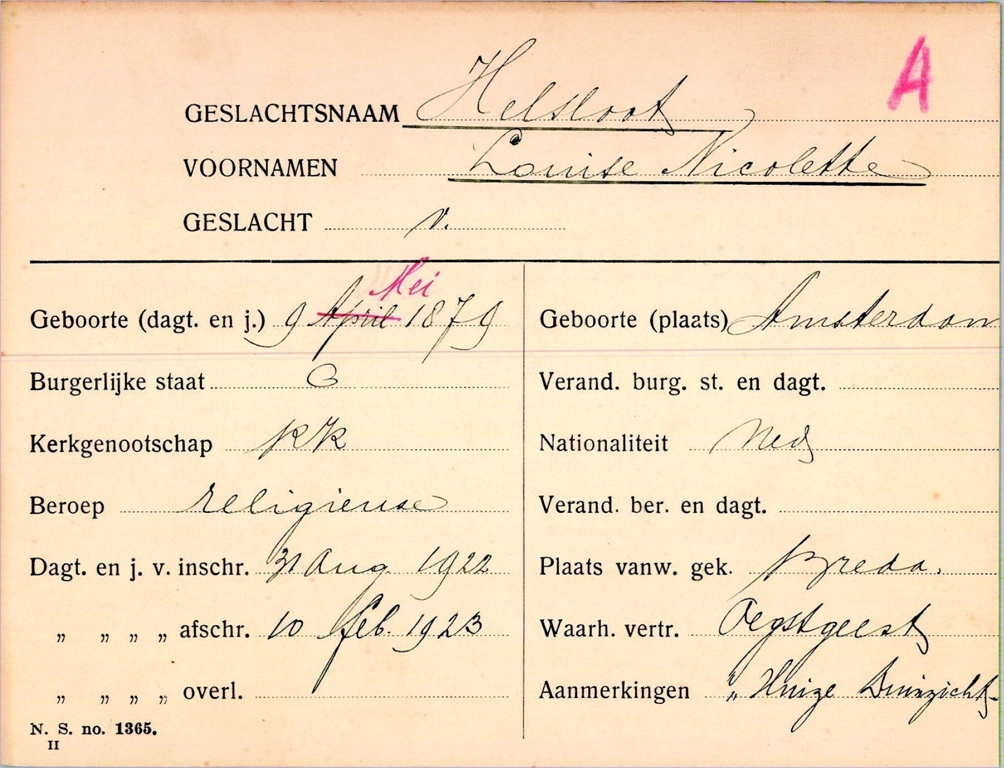 A
GESLACHTSNAAM Helsloot
VOORNAMEN Louise Nicolette
GESLACHT v.
Mei
Geboorte (dagt. en j.) 9 April 1879 Geboorte (plaats) Amsterdam
Burgerlijke staat O Verand. burg. st. en dagt.
Kerkgenootschap RK Nationaliteit Ned
Beroep religieuse Verand. ber. en dagt.
Dagt. en j. v. inschr. 31 Aug. 1922 Plaats vanw. gek. Breda.
„ „ „ „ afschr. 10 feb. 1923 Waarh. vertr. Oegstgeest
„ „ „ „ overl. Aanmerkingen „ Huize Duinzicht
N. S. no. 1365.
II